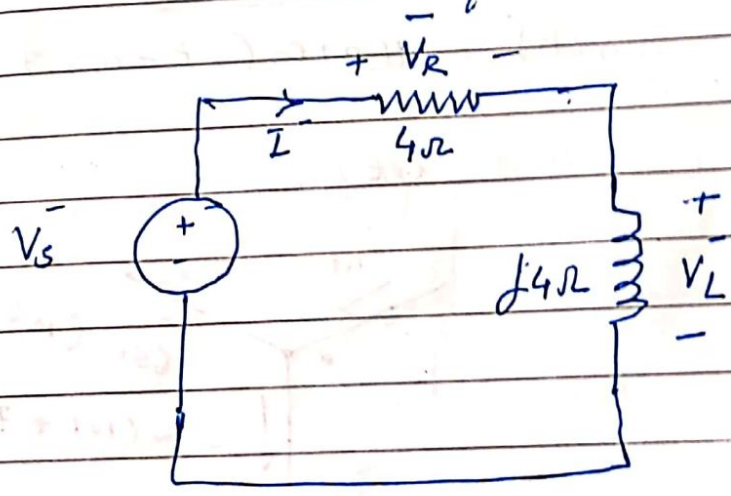 + V̅R −
I̅
4Ω
V̅s
+
−
j4Ω
+
V̅L
−